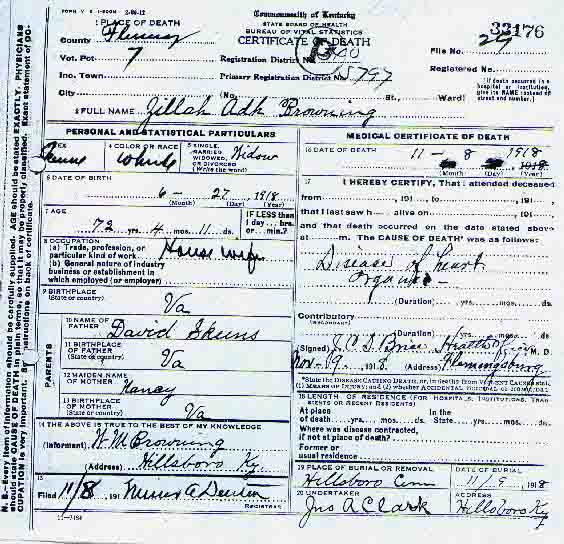 FORM V. S. 1-200M
Commonwealth of Kentucky
STATE BOARD OF HEALTH
BUREAU OF VITAL STATISTICS
CERTIFICATE OF DEATH
33176
1 PLACE OF DEATH
County Fleming
Vot. Pct 7
Registration District No.
File No. 27
Inc. Town
Primary Registration District No. 5797
Registered No.
City (No. St., Ward)
(If death occurred in a hospital or institution, give its NAME instead of street and number.)
2 FULL NAME Zillah Adk Browning
PERSONAL AND STATISTICAL PARTICULARS
3 SEX
4 COLOR OR RACE White
5 SINGLE, MARRIED, WIDOWED, OR DIVORCED (Write the word) Widow
6 DATE OF BIRTH
6 - 27, 1918
(Month) (Day) (Year)
7 AGE
72 yrs. 4 mos. 11 ds.
IF LESS than 1 day... hrs. or... min.?
8 OCCUPATION
(a) Trade, profession, or particular kind of work House wife
(b) General nature of industry business or establishment in which employed (or employer)
9 BIRTHPLACE
(State or country) Va
PARENTS
10 NAME OF FATHER David Skuns
11 BIRTHPLACE OF FATHER
(State or country) Va
12 MAIDEN NAME OF MOTHER Nancy
13 BIRTHPLACE OF MOTHER
(State or country) Va
14 THE ABOVE IS TRUE TO THE BEST OF MY KNOWLEDGE
(Informant) W. M. Browning
(Address) Hillsboro Ky
15
Filed 11/8, 191
MEDICAL CERTIFICATE OF DEATH
16 DATE OF DEATH 11 - 8 1918
(Month) (Day) (Year)
17 I HEREBY CERTIFY, That I attended deceased
from, 191 , to, 191 ,
that I last saw h alive on, 191 ,
and that death occurred on the date stated above
at m. The CAUSE OF DEATH* was as follows:
Disease of heart
organic
(Duration) yrs. mos. ds.
Contributory
(SECONDARY)
(Duration) yrs. mos. ds.
(Signed) Brice Health M. D.
Nov-19, 1918 (Address) Flemingsburg
*State the DISEASE CAUSING DEATH, or, in deaths from VIOLENT CAUSES, state (1) MEANS OF INJURY; and (2) whether ACCIDENTAL, SUICIDAL or HOMICIDAL.
18 LENGTH OF RESIDENCE (FOR HOSPITALS, INSTITUTIONS, TRANSIENTS OR RECENT RESIDENTS)
At place of death yrs. mos. ds. In the State yrs. mos. ds.
Where was disease contracted, if not at place of death?
Former or usual residence
19 PLACE OF BURIAL OR REMOVAL Hillsboro Cem
DATE OF BURIAL 11/9, 1918
20 UNDERTAKER Jno A Clark
ADDRESS Hillsboro Ky
11-3184
N. B.-Every item of information should be carefully supplied. AGE should be stated EXACTLY. PHYSICIANS
should state CAUSE OF DEATH in plain terms, so that it may be properly classified. Exact statement of OC-
CUPATION is very important. See instructions on back of certificate.